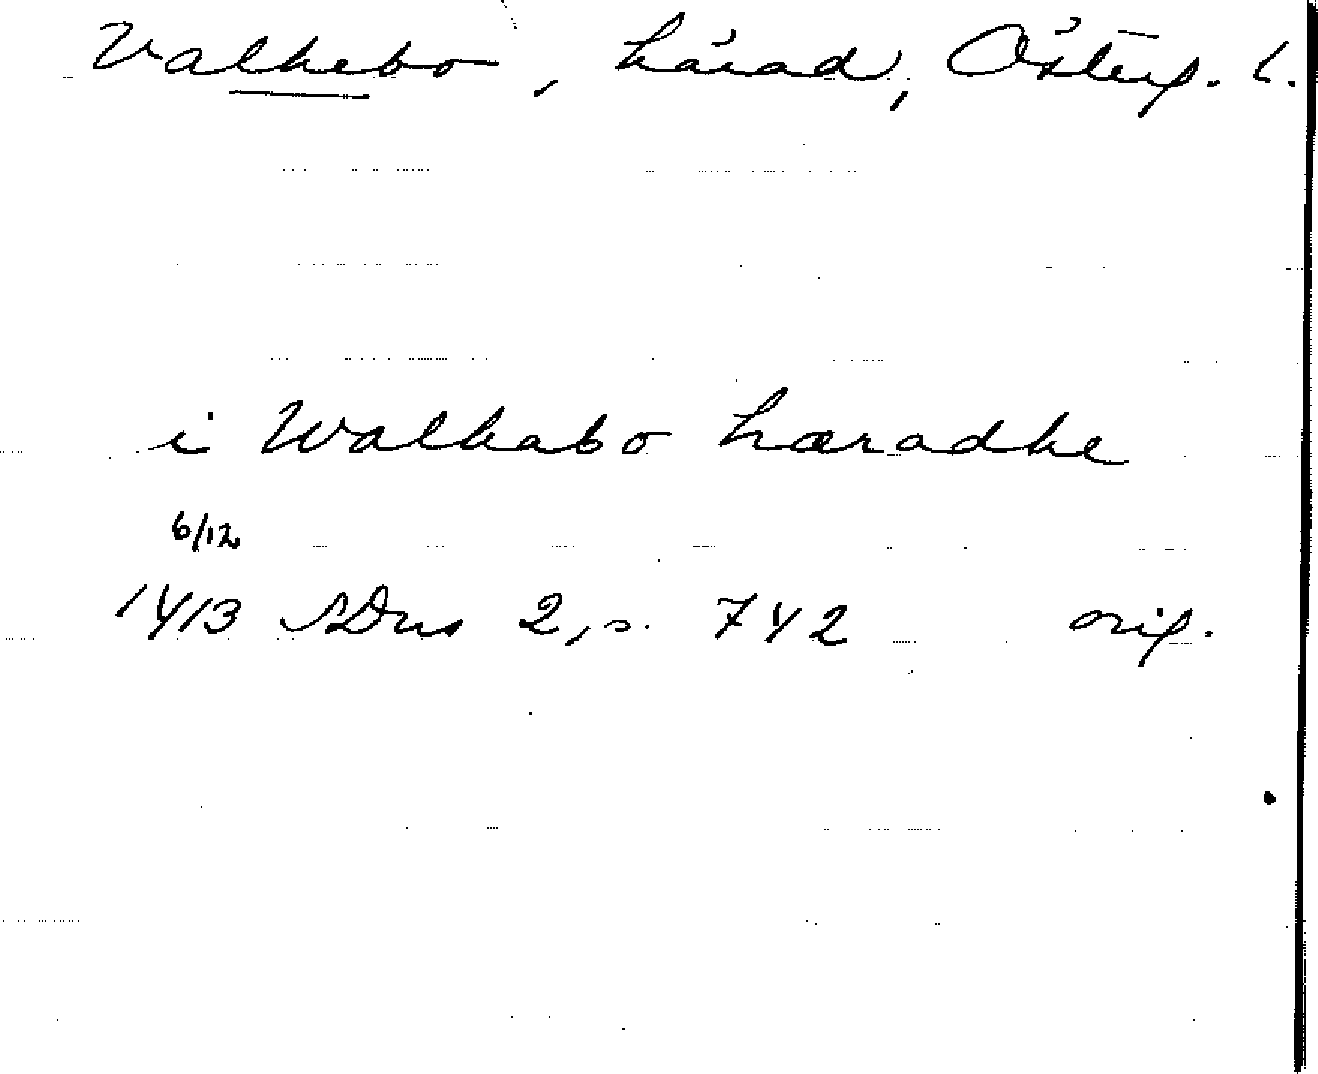 Valkebo, härad, Österg. l.
i Walkabo hæradhe
6/12
1413 SDns 2, s. 742 orig.